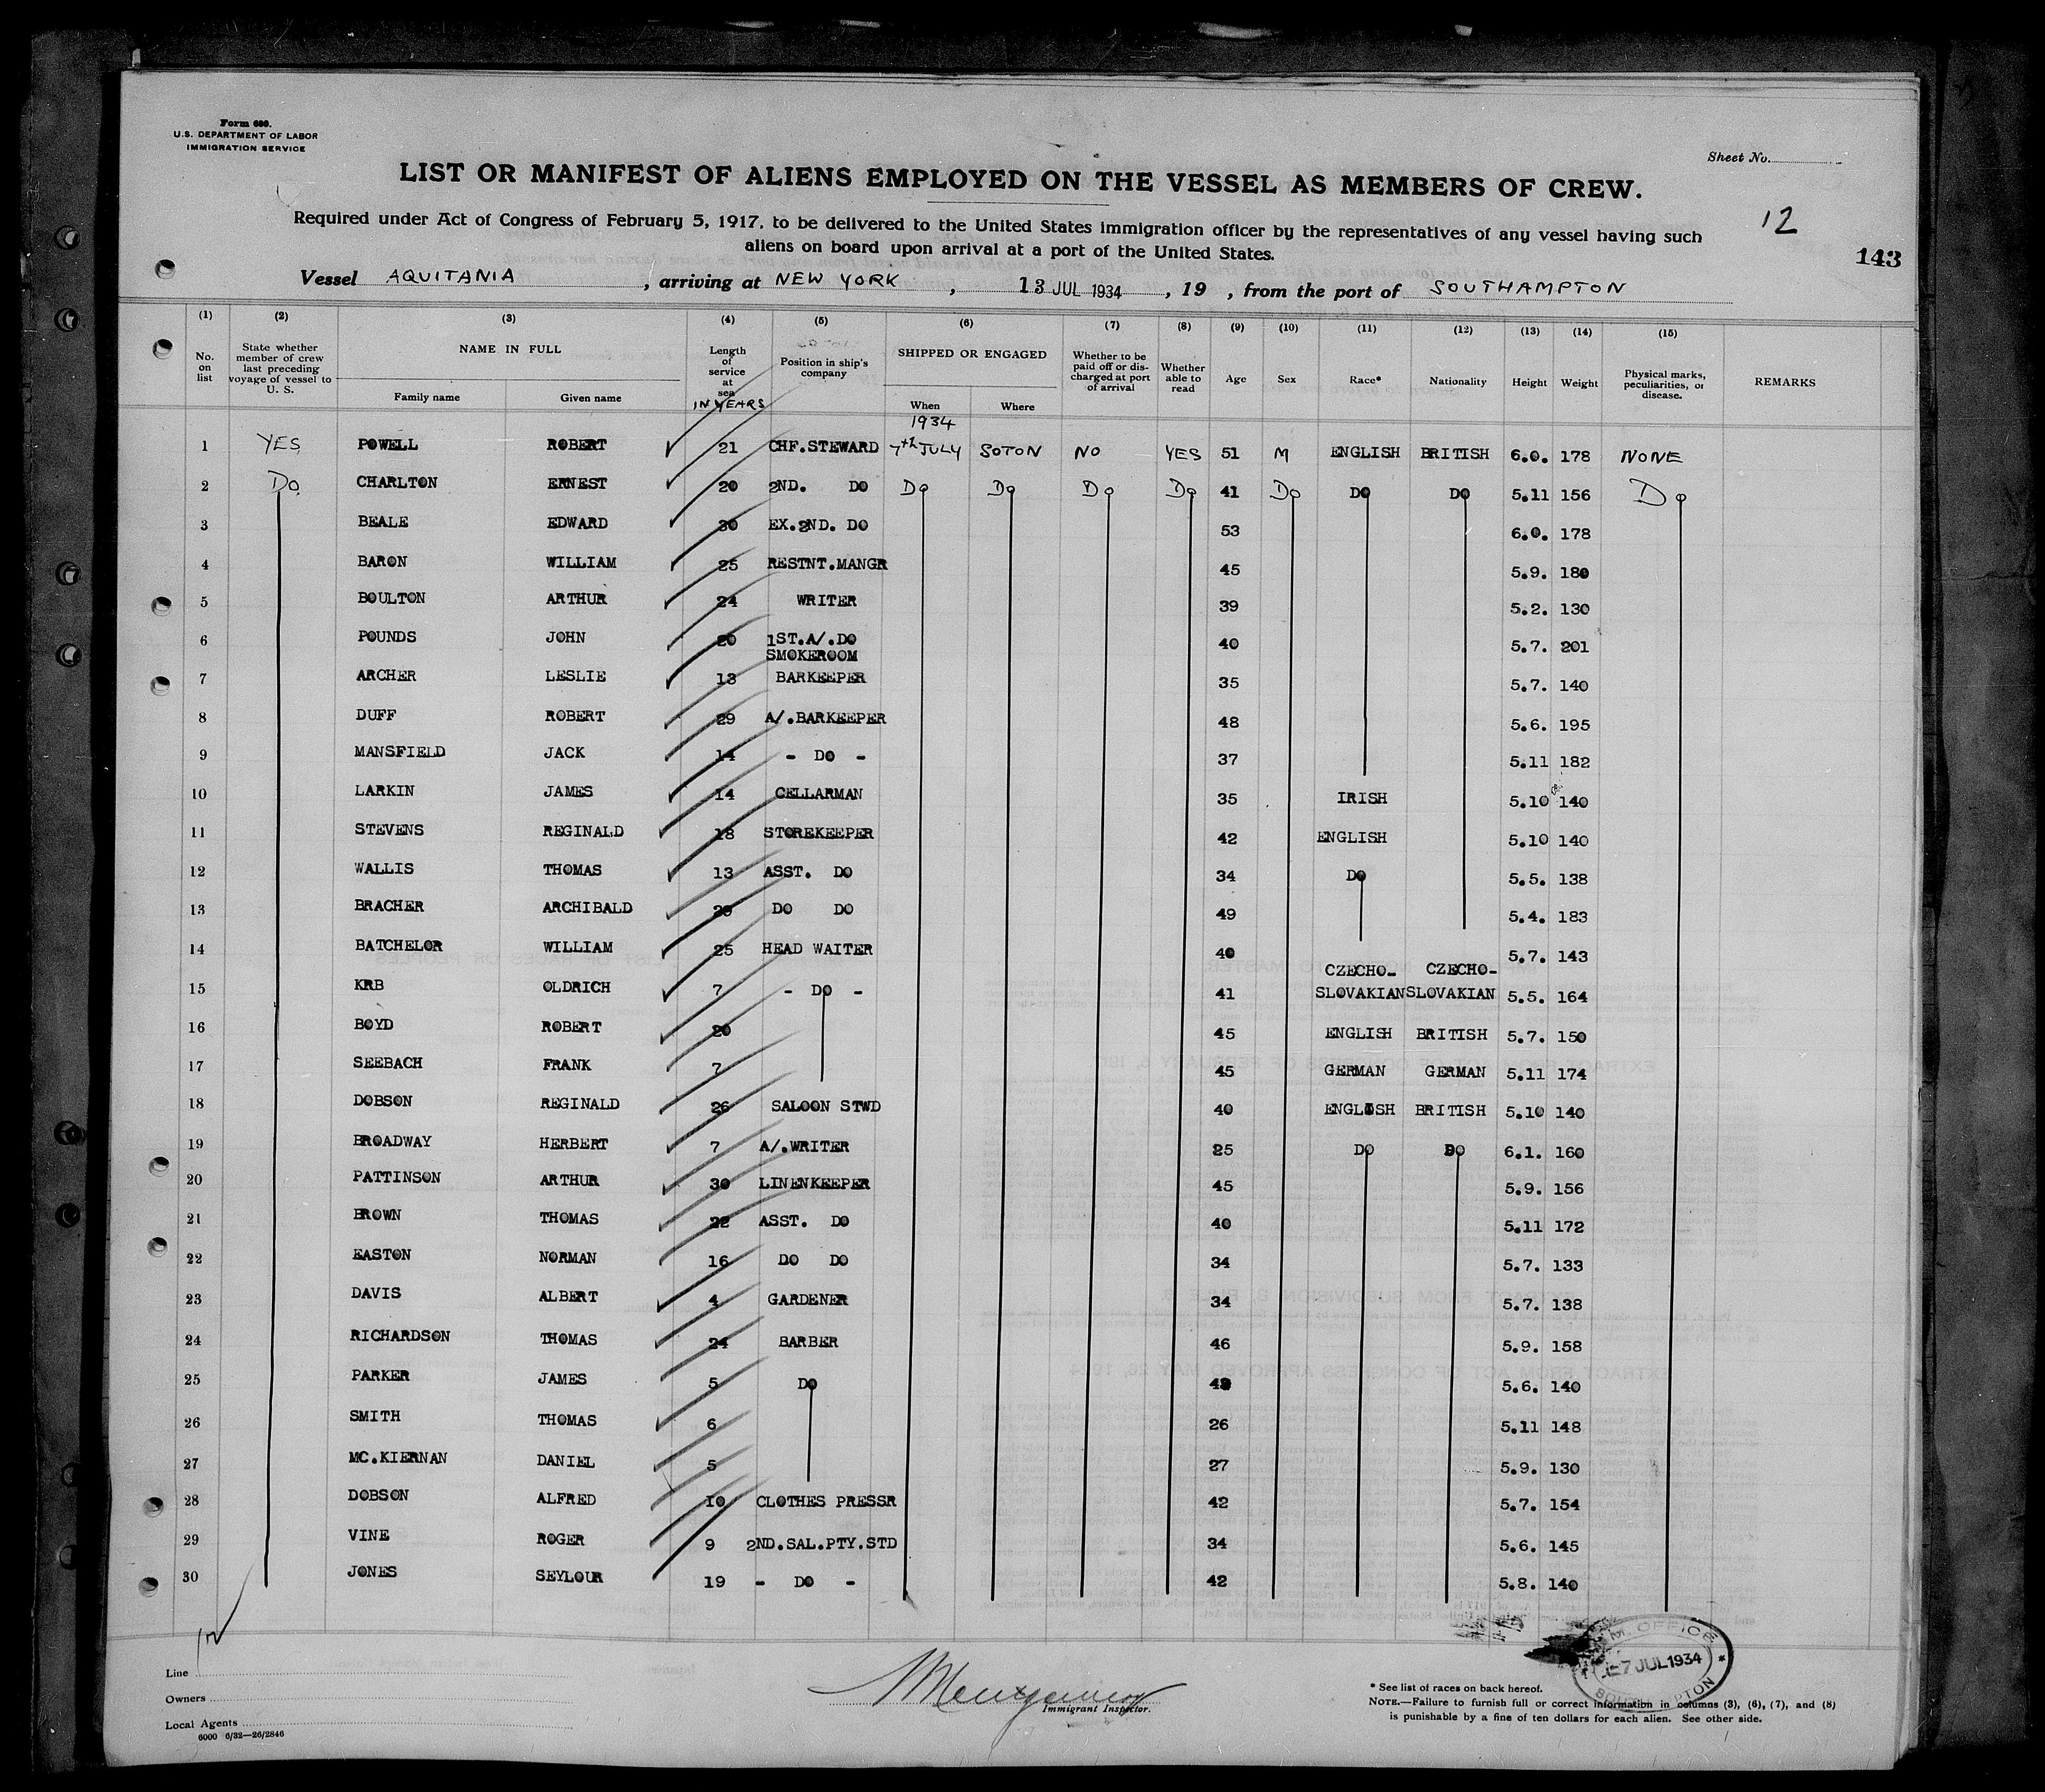 Form 680.
U.S. DEPARTMENT OF LABOR
IMMIGRATION SERVICE
Sheet No.
LIST OR MANIFEST OF ALIENS EMPLOYED ON THE VESSEL AS MEMBERS OF CREW.
12
Required under Act of Congress of February 5, 1917, to be delivered to the United States immigration officer by the representatives of any vessel having such
aliens on board upon arrival at a port of the United States.
143
Vessel AQUITANIA , arriving at NEW YORK , 13 JUL 1934 , 19 , from the port of SOUTHAMPTON
(1) (2) (3) (4) (5) (6) (7) (8) (9) (10) (11) (12) (13) (14) (15)
No. on list
State whether member of crew last preceding voyage of vessel to U. S.
NAME IN FULL
Family name Given name
Length of service at sea IN YEARS
Position in ship's company
SHIPPED OR ENGAGED
When Where
Whether to be paid off or discharged at port of arrival
Whether able to read
Age Sex Race* Nationality Height Weight
Physical marks, peculiarities, or disease.
REMARKS
1934
1 YES POWELL ROBERT 21 CHF.STEWARD 7th JULY SOTON NO YES 51 M ENGLISH BRITISH 6.0. 178 NONE
2 Do CHARLTON ERNEST 20 2ND. DO Do Do Do Do 41 Do DO DO 5.11 156 Do
3 BEALE EDWARD 30 EX.2ND. DO 53 6.0. 178
4 BARON WILLIAM 25 RESTNT.MANGR 45 5.9. 180
5 BOULTON ARTHUR 24 WRITER 39 5.2. 130
6 POUNDS JOHN 20 1ST.A/.DO 40 5.7. 201
SMOKEROOM
7 ARCHER LESLIE 13 BARKEEPER 35 5.7. 140
8 DUFF ROBERT 29 A/.BARKEEPER 48 5.6. 195
9 MANSFIELD JACK 14 - DO - 37 5.11 182
10 LARKIN JAMES 14 CELLARMAN 35 IRISH 5.10 140
11 STEVENS REGINALD 18 STOREKEEPER 42 ENGLISH 5.10 140
12 WALLIS THOMAS 13 ASST. DO 34 DO 5.5. 138
13 BRACHER ARCHIBALD DO DO 49 5.4. 183
14 BATCHELOR WILLIAM 25 HEAD WAITER 40 5.7. 143
CZECHO- CZECHO-
15 KRB OLDRICH 7 - DO - 41 SLOVAKIAN SLOVAKIAN 5.5. 164
16 BOYD ROBERT 20 45 ENGLISH BRITISH 5.7. 150
17 SEEBACH FRANK 7 45 GERMAN GERMAN 5.11 174
18 DOBSON REGINALD 26 SALOON STWD 40 ENGLISH BRITISH 5.10 140
19 BROADWAY HERBERT 7 A/.WRITER 25 DO DO 6.1. 160
20 PATTINSON ARTHUR 30 LINENKEEPER 45 5.9. 156
21 BROWN THOMAS 22 ASST. DO 40 5.11 172
22 EASTON NORMAN 16 DO DO 34 5.7. 133
23 DAVIS ALBERT 4 GARDENER 34 5.7. 138
24 RICHARDSON THOMAS 24 BARBER 46 5.9. 158
25 PARKER JAMES 5 DO 5.6. 140
26 SMITH THOMAS 6 26 5.11 148
27 MC.KIERNAN DANIEL 5 27 5.9. 130
28 DOBSON ALFRED 10 CLOTHES PRESSR 42 5.7. 154
29 VINE ROGER 9 2ND.SAL.PTY.STD 34 5.6. 145
30 JONES SEYLOUR 19 - DO - 42 5.8. 140
Line
Owners
Local Agents
6000 6/32—26/2846
Montgomery
Immigrant Inspector.
M. OFFICE
7 JUL 1934
* See list of races on back hereof.
NOTE.—Failure to furnish full or correct information in columns (3), (6), (7), and (8)
is punishable by a fine of ten dollars for each alien. See other side.